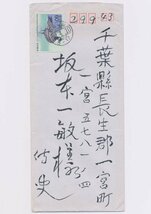 299 43
千葉縣長生郡一宮町
一宮五七八一ノ四
坂本一敏様
侍史